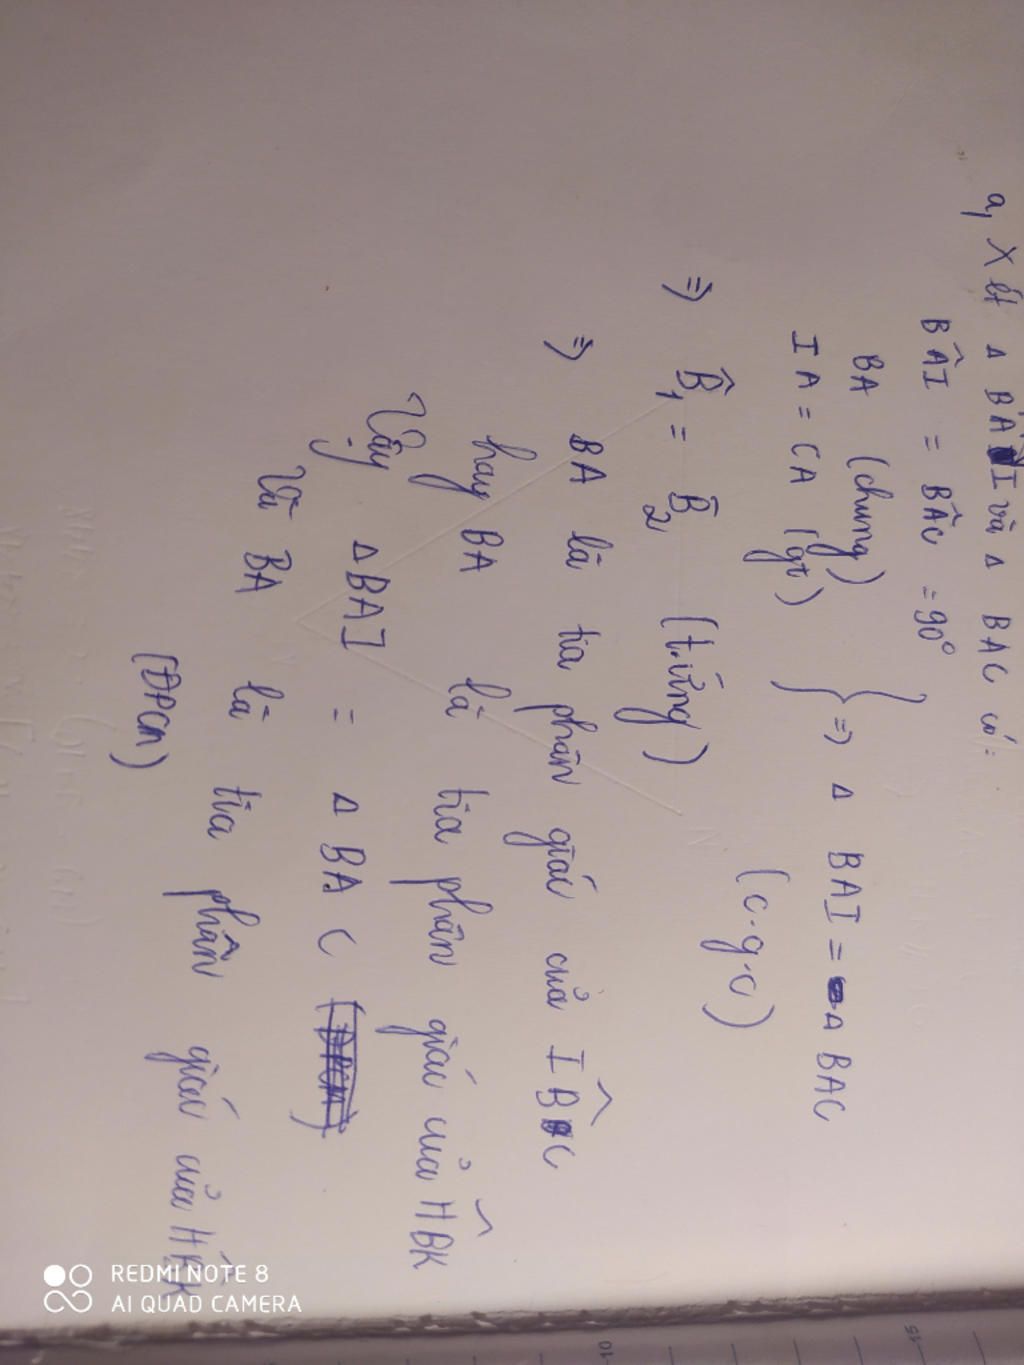 a, Xét Δ BAI và Δ BAC có:
BÂI = BÂC = 90°
BA (chung)
IA = CA (gt)
} => Δ BAI = Δ BAC
(c.g.c)
=> B̂₁ = B̂₂ (t.ứng)
=> BA là tia phân giác của IB̂C
hay BA là tia phân giác của HB̂K
Vậy Δ BAI = Δ BAC (ĐPCM)
Và BA là tia phân giác của HB̂K
(ĐPCM)
REDMI NOTE 8
AI QUAD CAMERA
10
15